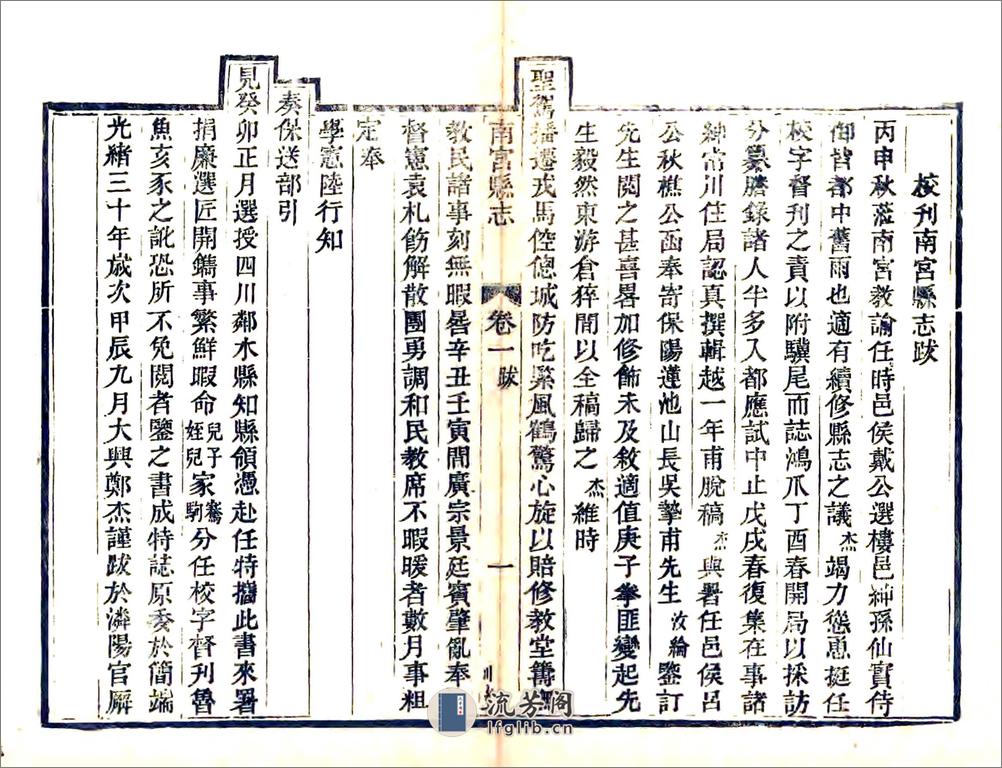 校刊南宮縣志跋
丙申秋蒞南宮教諭任時邑侯戴公選樓邑紳孫仙實侍
御皆都中舊雨也適有續修縣志之議杰竭力慫恿挺任
校字督刊之責以附驥尾而誌鴻爪丁酉春開局以採訪
分纂謄錄諸人半多入都應試中止戊戌春復集在事諸
紳常川住局認真撰輯越一年甫脫稿杰與署任邑侯呂
公秋樵公函奉寄保陽蓮池山長吳摯甫先生汝綸鑒訂
先生閱之甚喜畧加修飾未及敘適值庚子拳匪變起先
生毅然東游倉猝間以全稿歸之杰維時
聖駕播遷戎馬倥傯城防吃緊風鶴驚心旋以賠修教堂籌
南宮縣志 卷一 跋 一
教民諸事刻無暇晷辛丑壬寅間廣宗景廷賓肇亂奉
督憲袁札飭解散團勇調和民教席不暇暖者數月事粗
定奉
學憲陸行知
奏保送部引
見癸卯正月選授四川鄰水縣知縣領憑赴任特攜此書來署
捐廉選匠開鐫事繁鮮暇命兒子騫姪兒家駒分任校字督刊魯
魚亥豕之訛恐所不免閱者鑒之書成特誌原委於簡端
光緒三十年歲次甲辰九月大興鄭杰謹跋於潾陽官廨
流芳阁
lfglib.cn